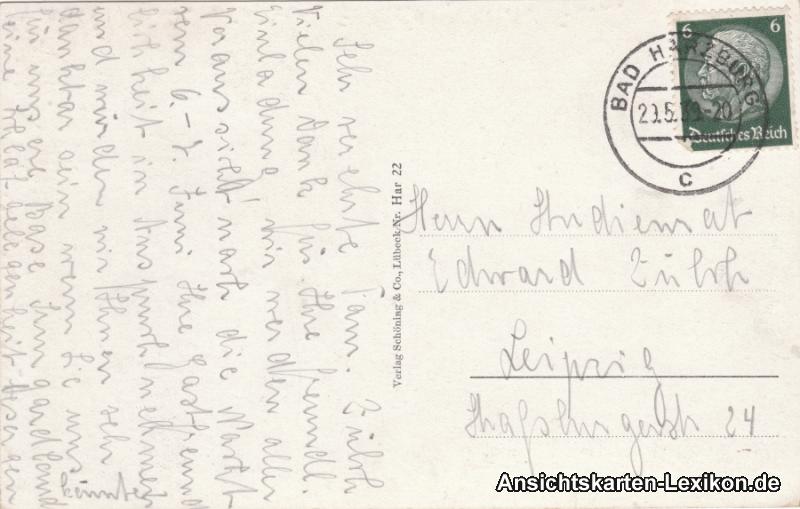 Sehr verehrte Fam. Zülch
Vielen Dank für Ihre freundl.
Einladung. Wir werden aller
Voraussicht nach die Nacht
vom 6.-7. Juni Ihre Gastfreund
lichkeit in Anspruch nehmen
und würden wir Ihnen sehr
dankbar sein wenn Sie uns
für unsere Base Irmgard
eine Schlafgelegenheit
könnten
Verlag Schöning & Co., Lübeck Nr. Har 22
6 6
Deutsches Reich
BAD HARZBURG
29.5.39.-20
c
Herrn Studienrat
Edward Zülch
Leipzig
str 24
Ansichtskarten-Lexikon.de